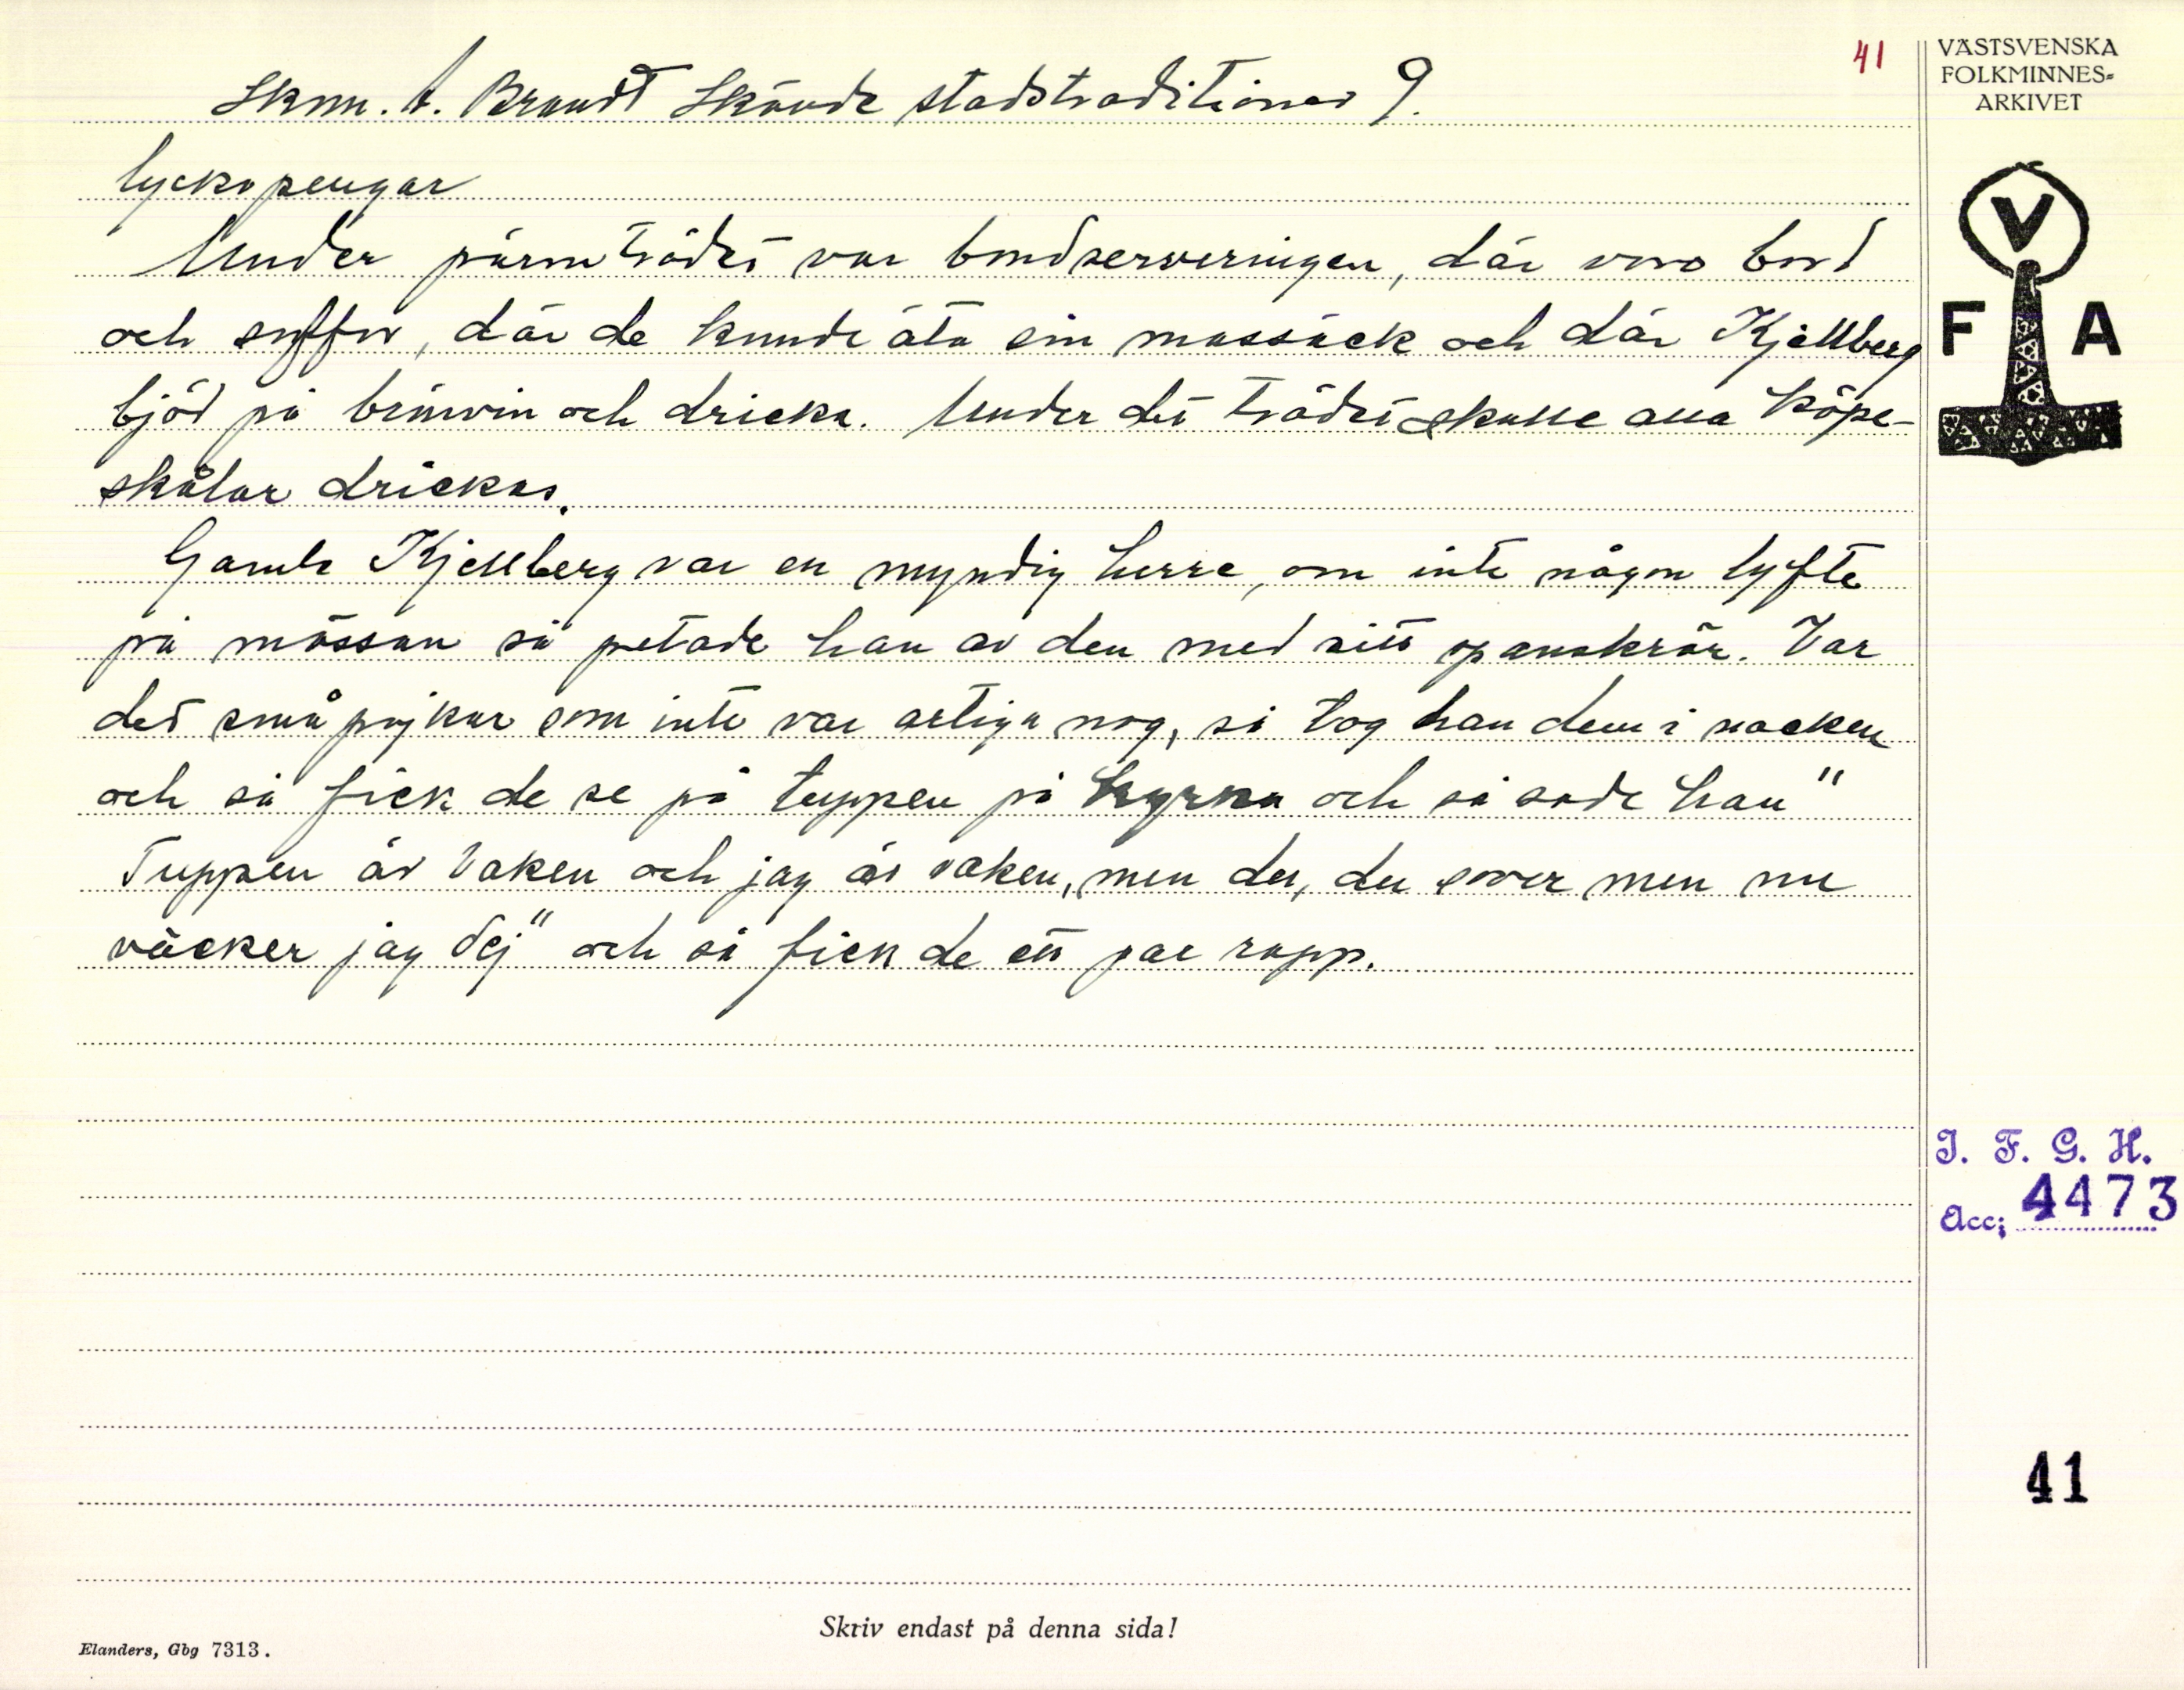 41
VÄSTSVENSKA
FOLKMINNES=
ARKIVET
Skm. A. Brandt Skövde stadstraditioner 9.
lyckopengar
Under päronträdet var bondserveringen, där voro bord
och soffor, där de kunde äta sin massäck och där Kjellberg
bjöd på brännvin och dricka. Under det trädet skulle alla köpe-
skålar drickas.
Gamle Kjellberg var en myndig herre, om inte någon lyfte
på mössan så petade han av den med sitt spanskrör. Var
det små pojkar som inte var artiga nog, så tog han dem i nacken
och så fick de se på tuppen på kyrka och så sade han "
Tuppen är vaken och jag är vaken, men du, du sover men nu
väcker jag dej" och så fick de ett par rapp.
V
F A
I. F. G. H.
Acc; 4473
41
Skriv endast på denna sida!
Elanders, Gbg 7313.